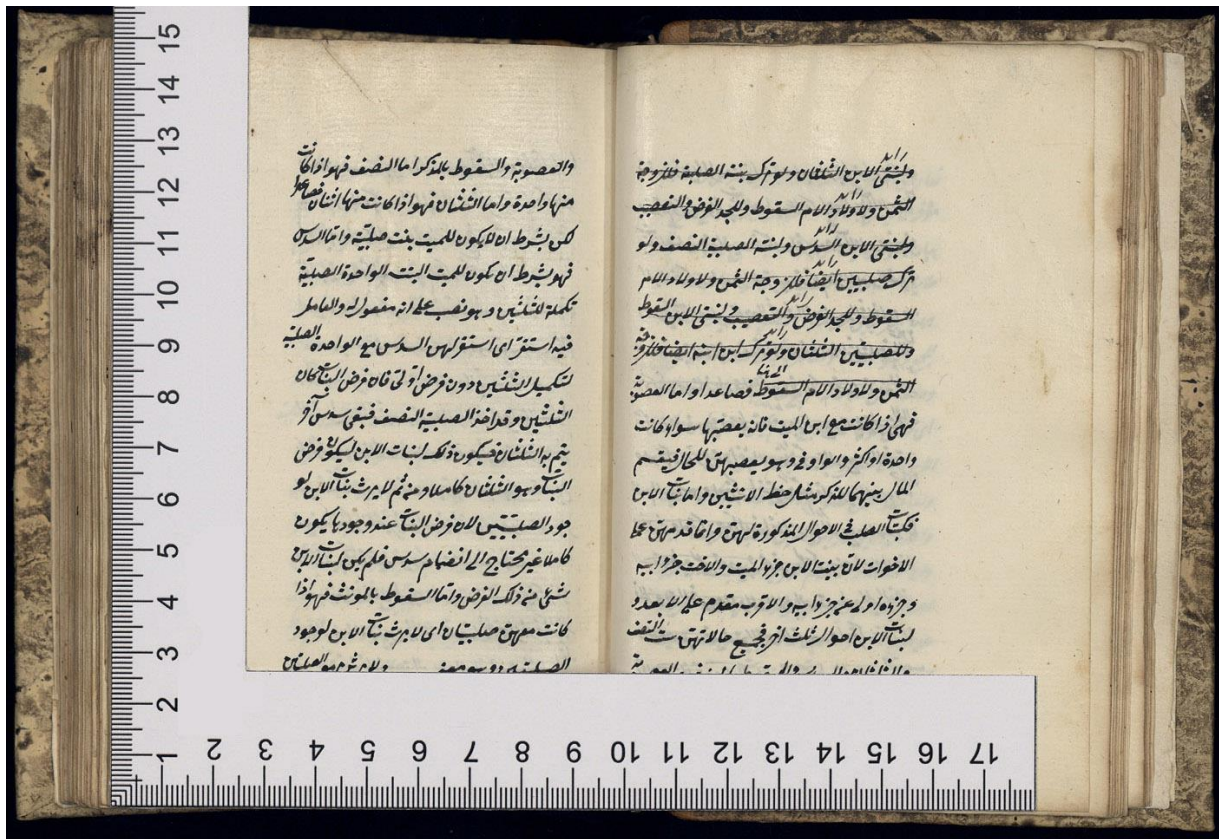 ولبنتي الابن الثلثان ولو ترك بنته الصلبية فللزوجة
زايد
الثمن ولاولاد الام السقوط وللجد الفرض والتعصيب
زايد
ولبنتي الابن السدس ولبنته الصلبية النصف ولو
زايد
ترك صلبيتين ايضا فللزوجة الثمن ولاولاد الام
زايد
السقوط وللجد الفرض والتعصيب ولبنتي الابن السقوط
زايد
وللصلبيتين الثلثان ولو ترك ابن ابنه ايضا فللزوجة
زايد
الثمن ولاولاد الام السقوط فصاعدا واما العصوبة
فهي اذا كانت مع ابن الميت فانه يعصبها سواء كانت
واحدة او اكثر والواو في وهو يعصبهن للحال فيقسم
المال بينهما للذكر مثل حظ الانثيين واما بنات الابن
فكبنات الصلب في الاحوال المذكورة لهن وانما قدمهن على
الاخوات لان بنت الابن جزء الميت والاخت جزء ابيه
وجزءه اولى عن جزء ابيه والاقرب مقدم على الابعد و
لبنات الابن احوال ثلث اخر فجميع حالاتهن ست النصف
والعصوبة والسقوط بالمذكر اما النصف فهو اذا كانت
منها واحدة واما الثلثان فهو اذا كانت منها اثنتان فصاعدا
لكن بشرط ان لا يكون للميت بنت صلبيّة واما السدس
فهو بشرط ان يكون للميت البنت الواحدة الصلبيّة
تكملة للثلثين وهو نصب على انه مفعول له والعامل
فيه استقر اى استقر لهن السدس مع الواحدة الصلبية
لتكميل الثلثين دون فرض اولى فان فرض البنات كان
الثلثين وقد اخذ الصلبية النصف فبقى سدس آخر
يتم به الثلثان فيكون ذلك لبنات الابن ليكون فرض
البنات وهو الثلثان كاملا ومن ثم لا يرث بنات الابن لو
جود الصلبيّتين لان فرض البنات عند وجودها يكون
كاملا غير محتاج الى انضمام سدس فلم يكن لبنات الابن
شئ من ذلك الفرض واما السقوط بالمونث فهو اذا
كانت معهن صلبيتان اى لا يرث بنات الابن لوجود
15
14
13
12
11
10
9
8
7
6
5
4
3
2
1
2 3 4 5 6 7 8 9 10 11 12 13 14 15 16 17